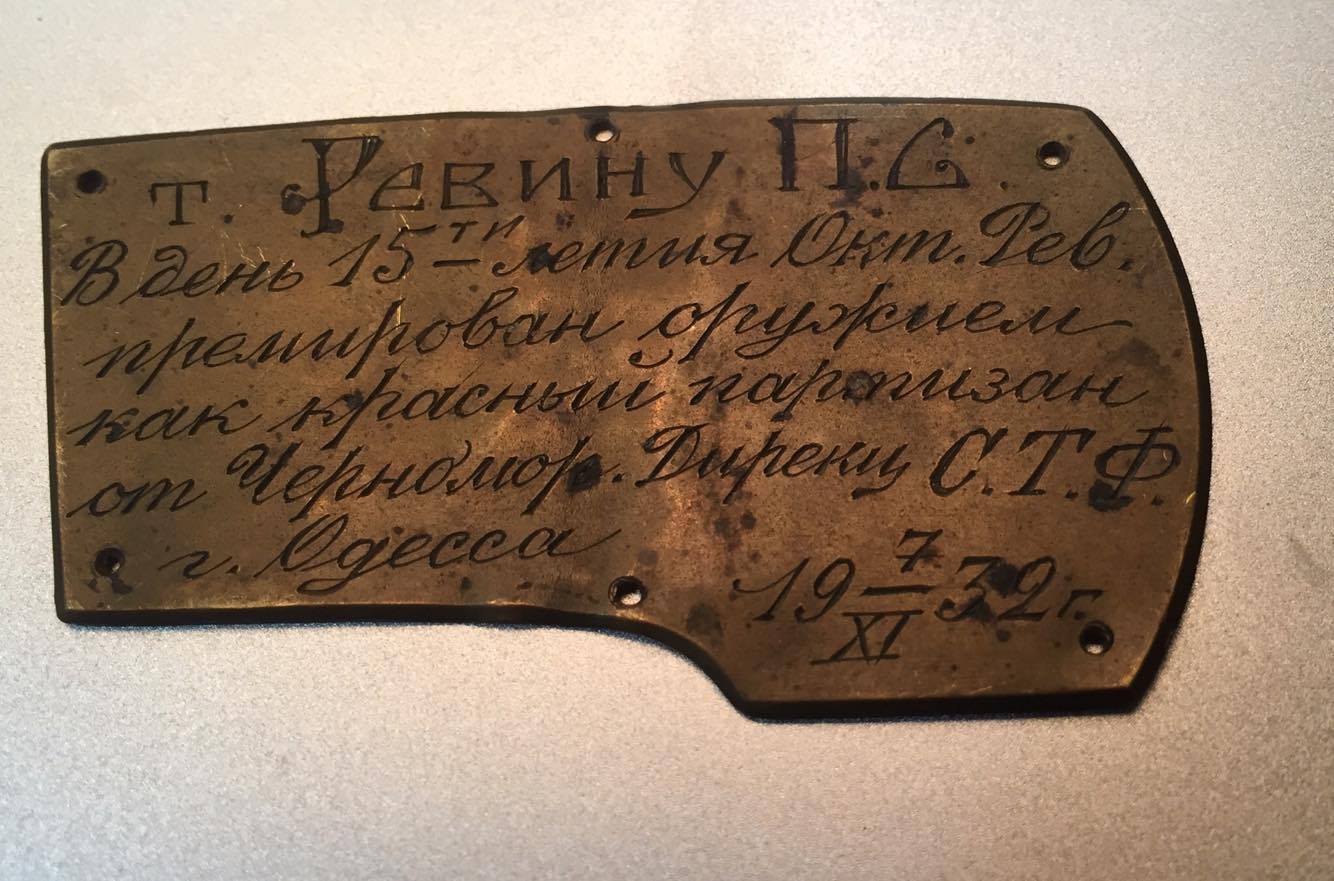 т. Ревину П.С.
В день 15-ти летия Окт. Рев.
премирован оружием
как красный партизан
от Черномор. Дирекц С.Т.Ф.
г. Одесса
19 7/XI 32 г.